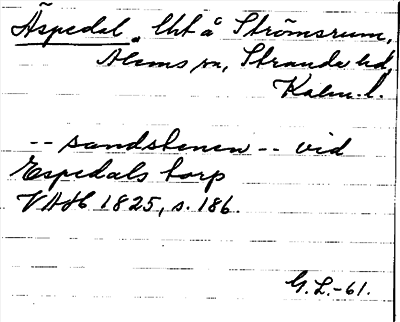 Äspedal. Lht å Strömsrum,
Ålems sn, Stranda hd,
Kalm. l.
-- sandstenen -- vid
Espedals torp
VAH 1825, s. 186.
G. L. -61.